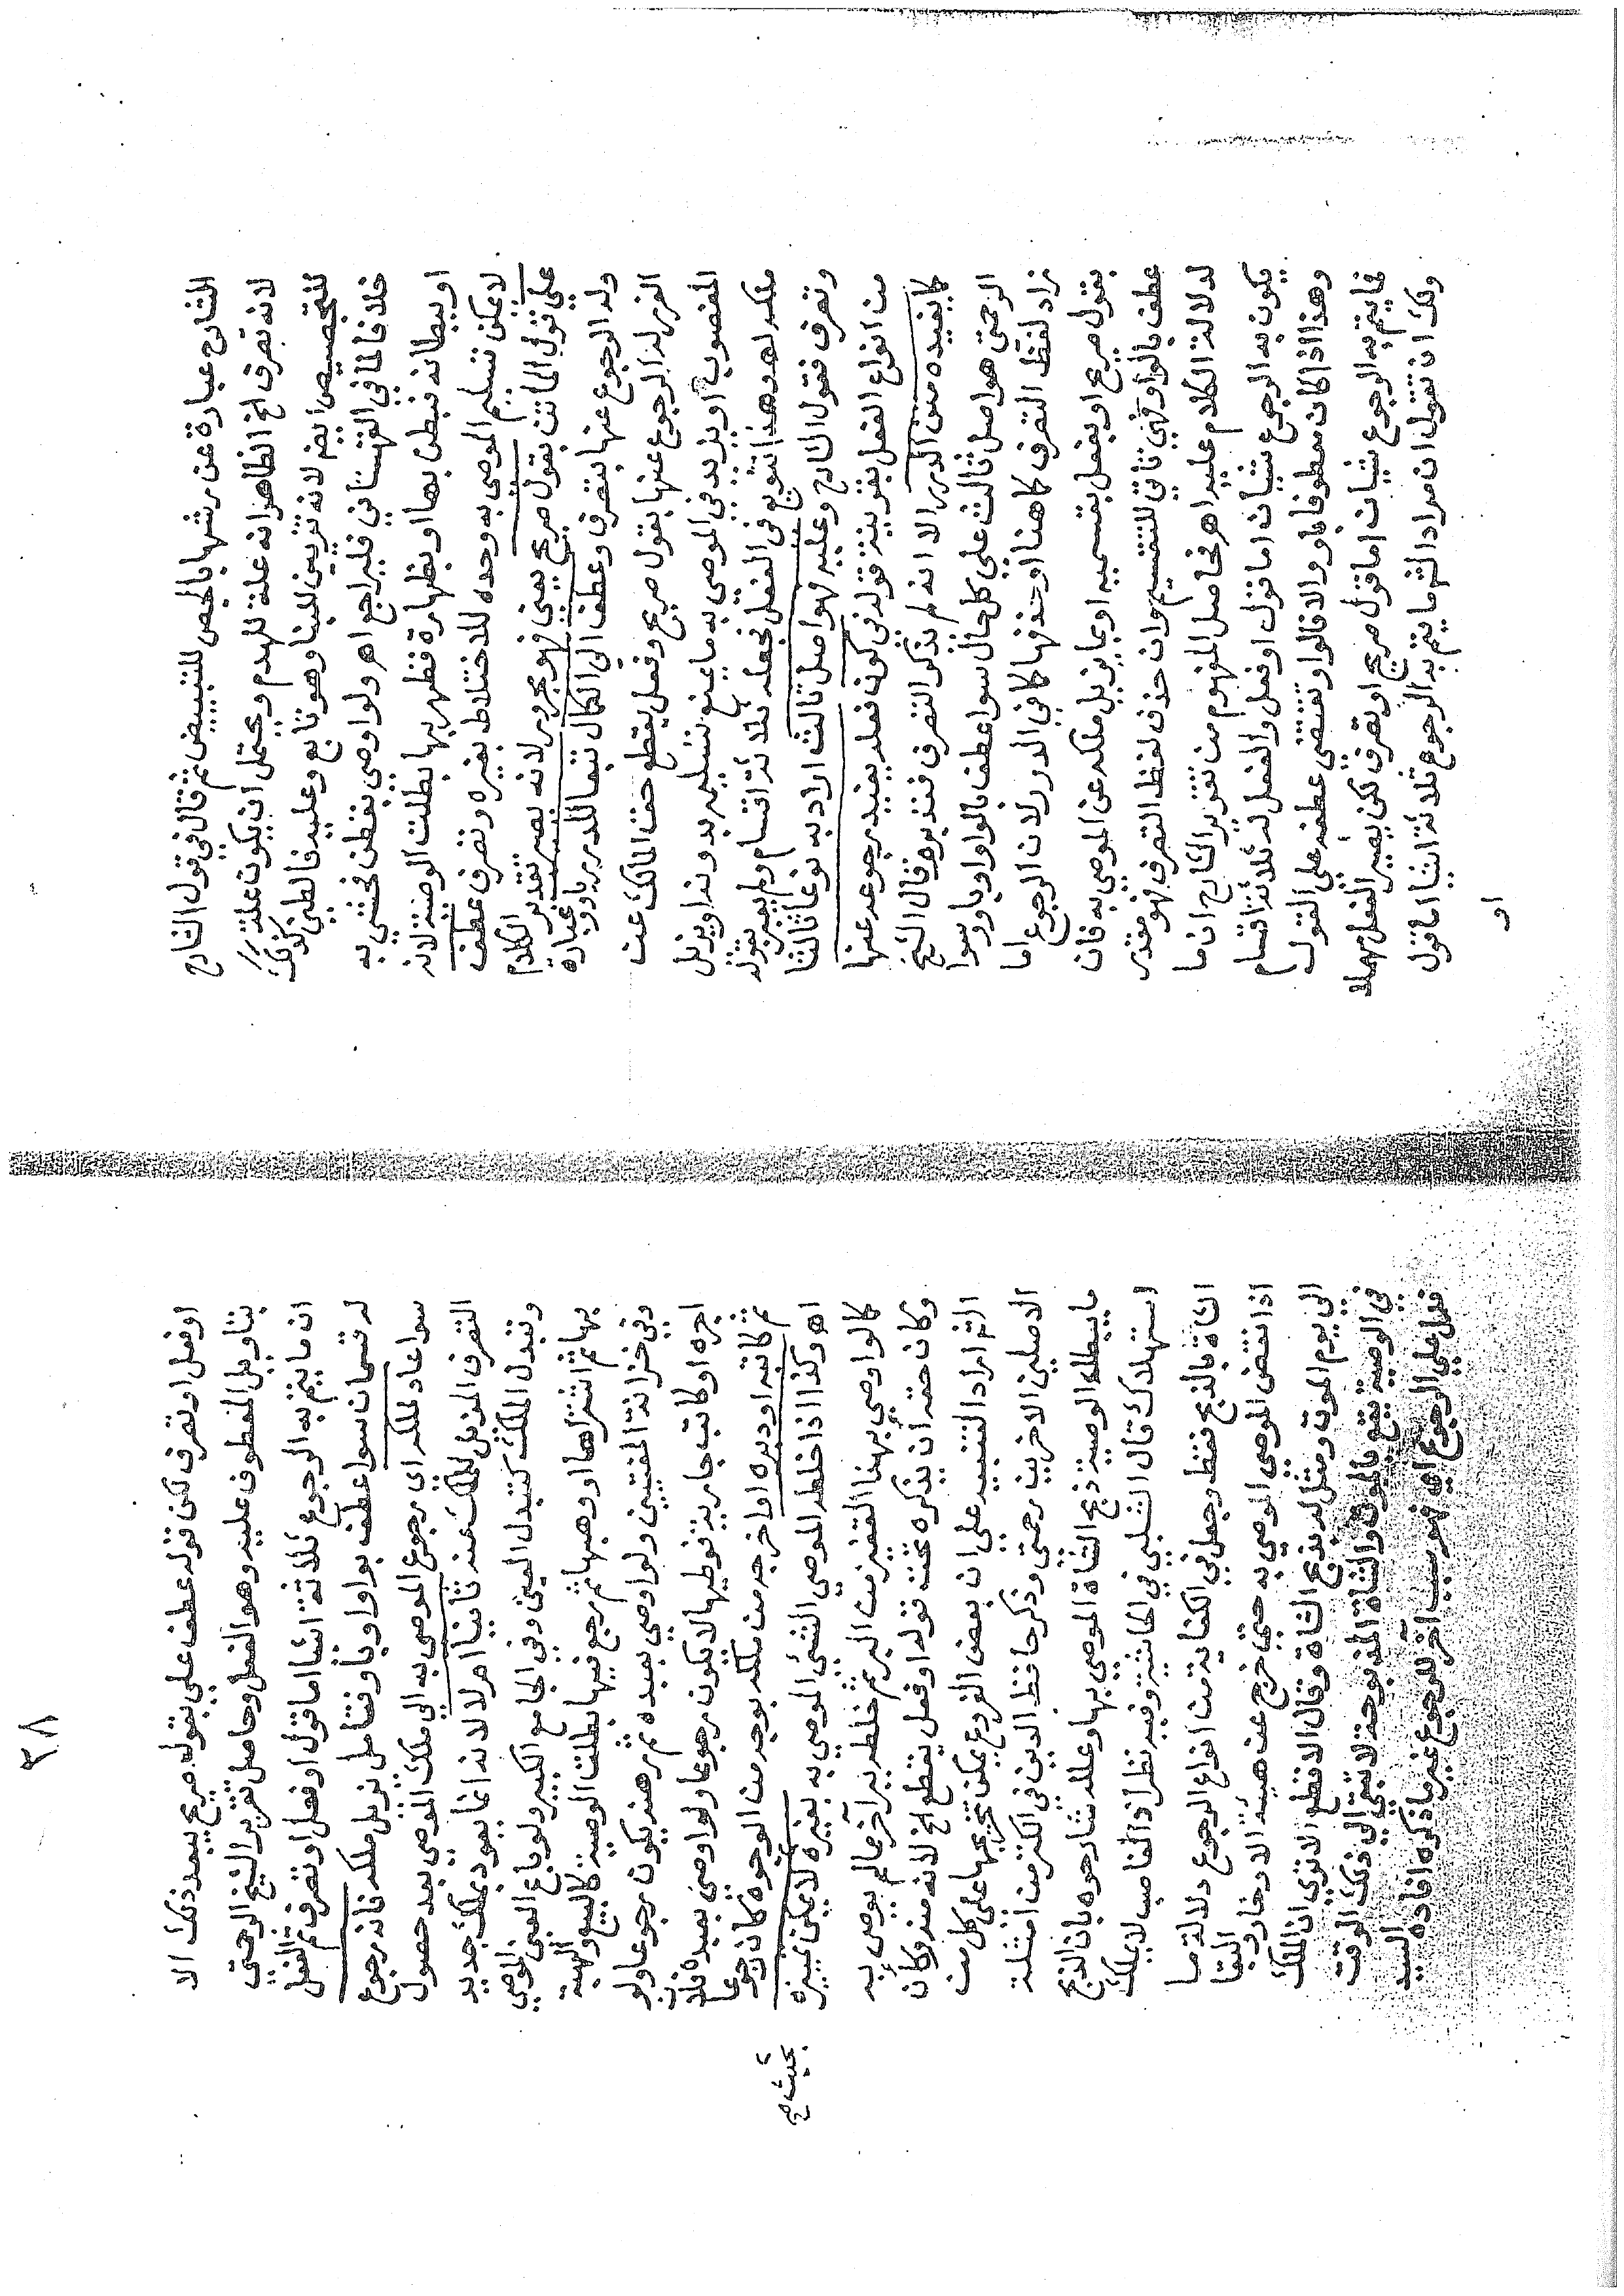 الشارح عبارة عن رشها بالجص للتبييض ثم قال في قول الشارح
لانه تصرف الخ الظاهر انه علة للهدم ويحتمل ان يكون علة
للتجصيص ايضا لانه تزيين للبنا وهو تابع وعليه فالطين كذلك
خلافا لما في القهستاني فليراجع اهـ ولو اوصى بقطن فحشي به
او ببطانة فبطن بها او بظهارة فظهر بها بطلت الوصية لانه
لا يمكن تسليم الموصى به وحده للاختلاط بغيره وتصرف عطف
على قول الماتن بقول صريح يعني فهو مجرور لانه يصير تقدير الكلام
وله الرجوع عنها بتصرف وعطف الكمال تبعا للدرر باو وعبارة
الغرر له الرجوع عنها بقول صريح وفعل يقطع حق المالك عن
المغصوب او يزيد في الموصى به ما يمنع تسليمه بدونه او يزيل
ملكه اهـ وهذا تنويع في الفعل فجعله ثلاثة اقسام ولم يعبر بقوله
وتصرف فقول الشارح وعليه فهو اصل ثالث اراد به نوعا ثالثا
من انواع الفعل بقرينة قوله في كون فعله يفيد رجوعه عنها
كما يفيده متن الدرر الا انه لم يذكر التصرف فتدبر قال الشيخ
الرحمتي هو اصل ثالث على كل حال سوا عطف بالواو او باو وسوا
زاد لفظ التصرف كما هنا او حذفها كما في الدرر لان الرجوع اما
بقول صريح او بفعل بقسميه او بما يزيل ملكه عن الموصى به فان
عطف بالواو فهي تاتي للتقسيم وان حذف لفظ التصرف فهو مقدر
لدلالة الكلام عليه اهـ فحاصل المفهوم من تقرير الشارح ان ما
يكون به الرجوع شيئان اما قول او فعل والفعل له ثلاثة اقسام
وهذا اذا كان معطوفا باو والا فالواو تقتضي عطفه على القول
فما يتم به الرجوع شيئان اما قول صريح او تصرف لكن يصير الفعل مهملا
ولك ان تقول ان مراد الشر ما يتم به الرجوع ثلاثة اشيا اما قول
او
٣٨
او فعل او تصرف لكن قوله عطف على بقوله صريح يبعد ذلك الا
بتاويل المعطوف عليه وهو الفعل وحاصل تقرير الشيخ الرحمتي
ان ما يتم به الرجوع ثلاثة اشيا اما قول او فعل او تصرف ثم الفعل
له قسمان سوا عطف بواو او باو فتامل يزيل ملكه فانه رجوع
سوا عاد لملكه اي رجوع الموصى به الى ملك الموصي بعد حصول
التصرف المزيل للملك عنه ثانيا ام لا لانه انما يعود بملك جديد
وتبدل الملك كتبدل العين وفي الجامع الكبير ولو باع العين الموصى
بها ثم اشتراها او وهبها ثم رجع فيها بطلت الوصية كالبيع والهبة
وفي خزانة المفتيين ولو اوصى بعبده ثم رهنه يكون رجوعا ولو
اجره او كاتب جارية فوطيها لا يكون رجوعا ولو اوصى بعبده فلان
ثم كاتبه او دبره او اخرجه من ملكه بوجه من الوجوه كان رجوعا
اهـ وكذا اذا خلطه الموصي الشئ الموصى به بغيره لا يمكن تمييزه
بحيث صح
كما لو اوصى بهذا القفيز من البر ثم خلطه ببر آخر مالم يوص به
وكان حقه ان يذكره تحت قوله او فعل يقطع الخ لانه منه وكان
الشر اراد التنبيه على ان بعض الفروع يمكن تخريجها على كل من
الاصلين الاخرين رحمتي وذكر حافظ الدين في الكنز من امثلة
ما يبطل الوصية ذبح الشاة الموصى بها وعلله شارحوه بان الذبح
استهلاك قال الشلبي في الحاشية وفيه نظر اذ الغاصب لا يملك
الشاة بالذبح فقط وجعل في الكفاية من انواع الرجوع دلالة ما
اذا نقض الموصي الموصى به حتى خرج عن هيئة الادخار والبقا
الى يوم الموت ومثل له بذبح الشاة وقال الاقطع الا ترى ان الملك
في الوصية يقع بالموت والشاة المذبوحة لا تبقى الى ذلك الوقت
فعل على الرجوع اي فهو سبب آخر للرجوع غير ما ذكره افاده السيد